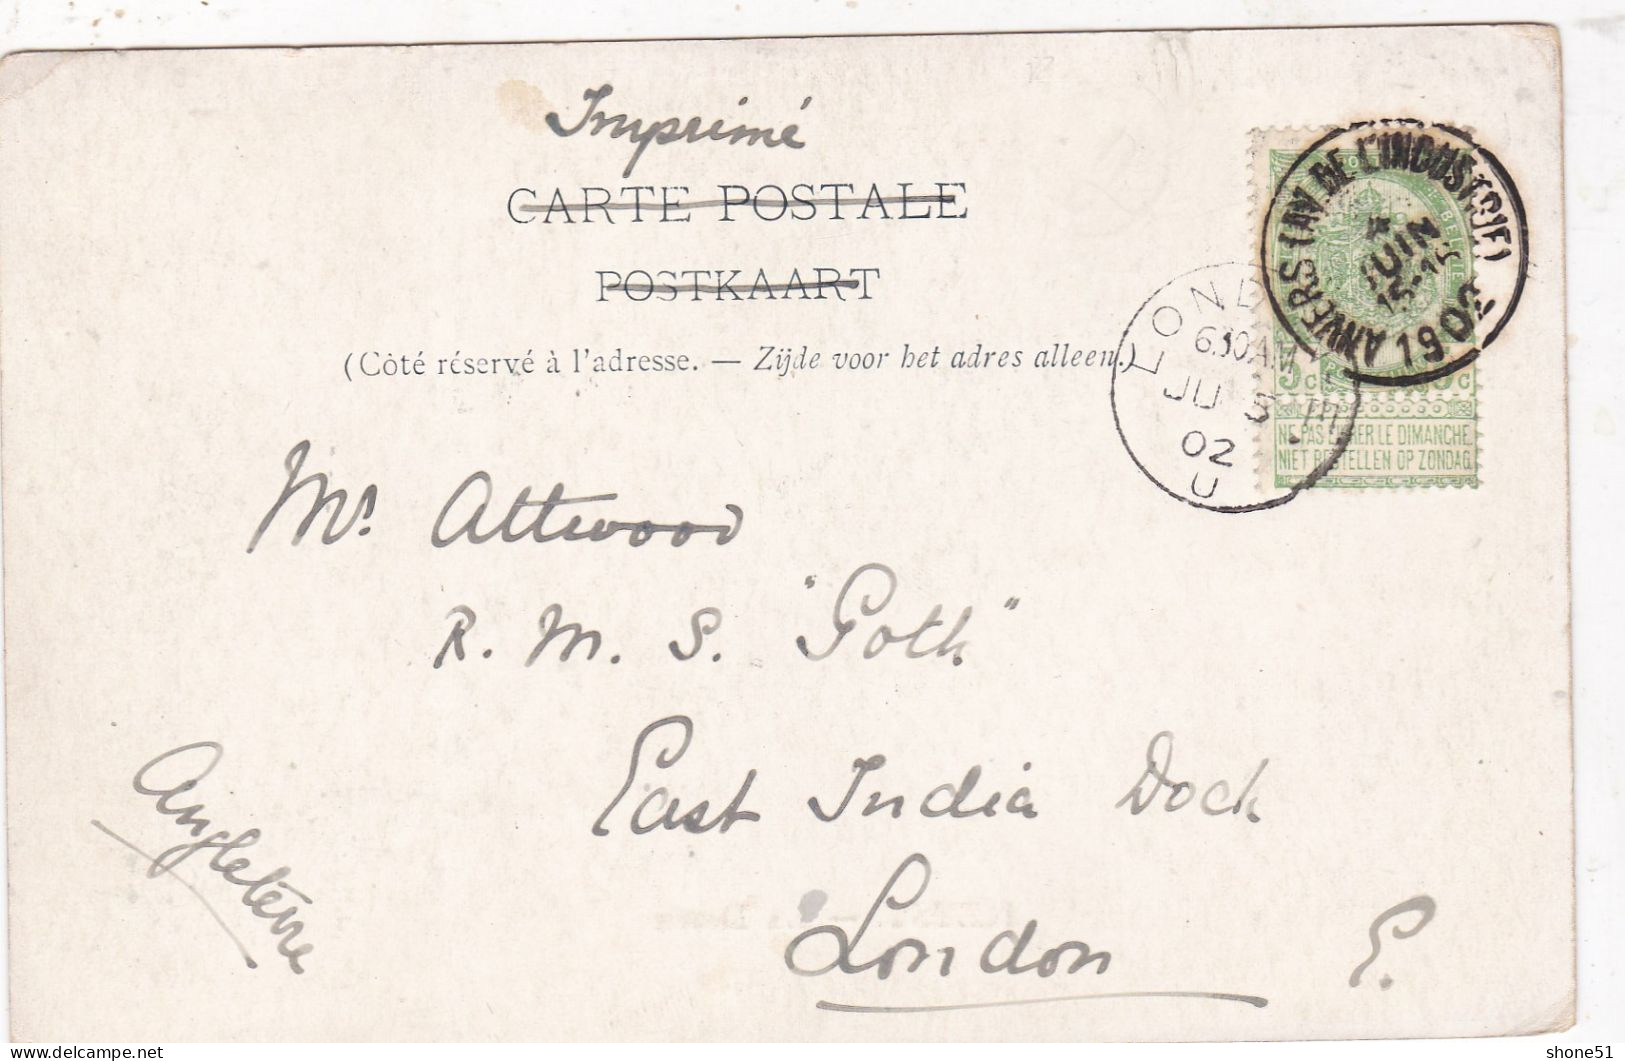 Imprimé
CARTE POSTALE
POSTKAART
(Côté réservé à l'adresse. — Zijde voor het adres alleen.)
ANVERS (AV. DE L'INDUSTRIE)
4
JUIN
15-15
1902
LOND
6.30 AM
JU 5
02
U
5c
NE PAS LIVRER LE DIMANCHE
NIET BESTELLEN OP ZONDAG
Mr Attwood
R. M. S. "Goth"
East India Dock
London E.
Angleterre
delcampe.net
shone51